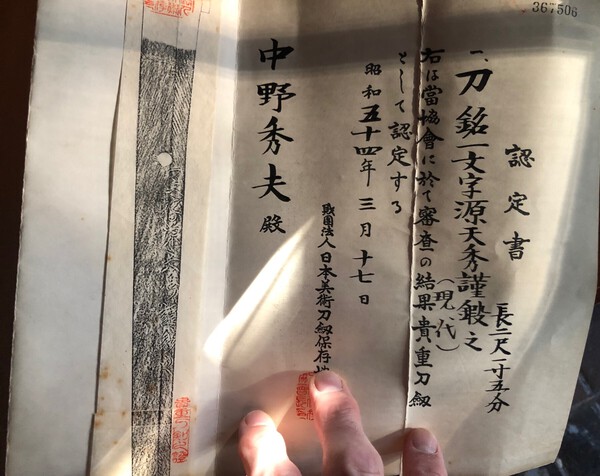 367506
認定書
一、刀 銘 一文字源天秀謹鍛之
(現代)
長二尺一寸五分
右は當協會に於て審査の結果貴重刀劔
として認定する
昭和五十四年三月十七日
財團法人日本美術刀劔保存
中野秀夫殿